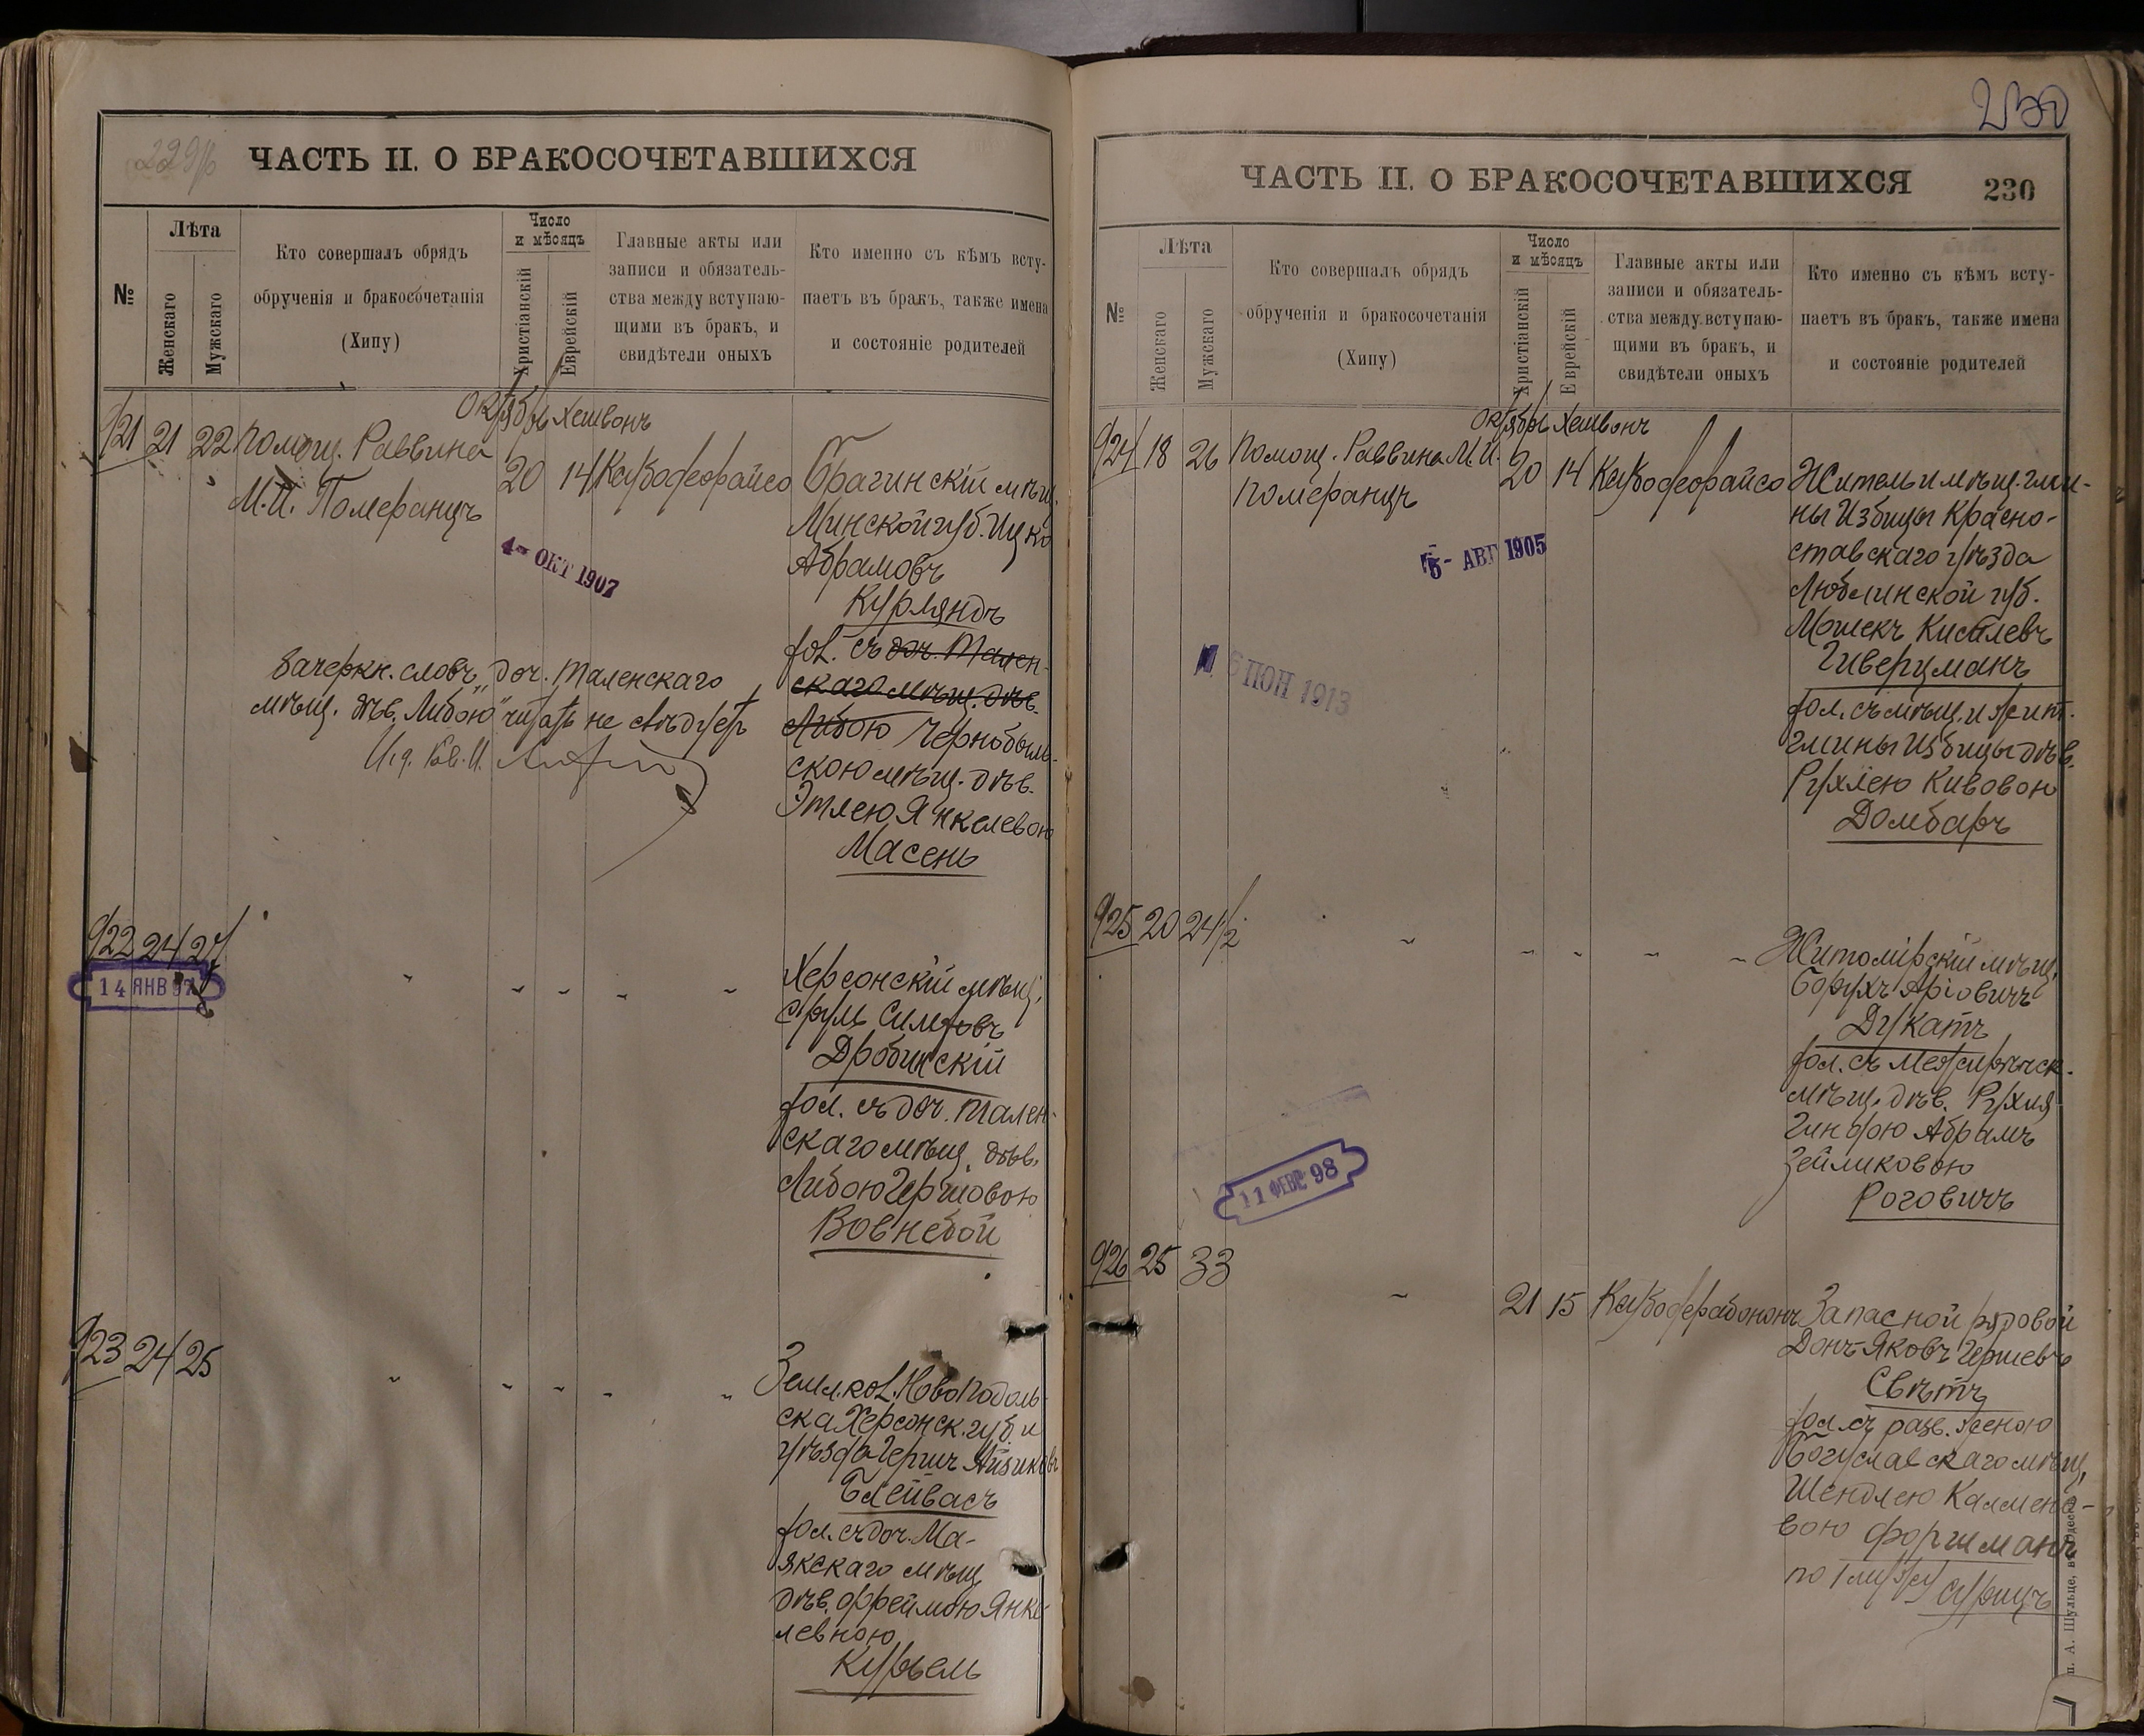 229/б
ЧАСТЬ II. О БРАКОСОЧЕТАВШИХСЯ
№
Лѣта
Женскаго
Мужскаго
Кто совершалъ обрядъ
обрученія и бракосочетанія
(Хипу)
Число
и мѣсяцъ
Христіанскій
Еврейскій
Главные акты или
записи и обязатель-
ства между вступаю-
щими въ бракъ, и
свидѣтели оныхъ
Кто именно съ кѣмъ всту-
паетъ въ бракъ, также имена
и состояніе родителей
Октябрь Хешвонъ
921 21 22 Помощ. Раввина
М.И. Померанцъ
20 14
4- ОКТ 1907
Брагинскій мѣщ.
Минской губ. Ицко
Абрамовъ
Курляндъ
хол. съ доч. Тален-
скаго мѣщ. дѣв.
Либою Чернобыль-
скою мѣщ. дѣв.
Этлею Янкелевою
Масень
Зачеркн. словъ „доч. Таленскаго
мѣщ. дѣв. Либою" читать не слѣдуетъ
922 24 27
14 ЯНВ 97
" " " " "
Херсонскій мѣщ.
Сруль
Дробинскій
хол. съ доч. Тален-
скаго мѣщ. дѣв.
Либою Гершовою
Вовнебой
923 24 25
" " " " "
Земл. кол. Новоподоль-
ска Херсонск. губ. и
уѣзда Гершъ Айзиковъ
Блейвасъ
хол. съ доч. Ма-
якскаго мѣщ.
дѣв. Фреймою Янке-
левною
Куръель
230
ЧАСТЬ II. О БРАКОСОЧЕТАВШИХСЯ
230
№
Лѣта
Женскаго
Мужскаго
Кто совершалъ обрядъ
обрученія и бракосочетанія
(Хипу)
Число
и мѣсяцъ
Христіанскій
Еврейскій
Главные акты или
записи и обязатель-
ства между вступаю-
щими въ бракъ, и
свидѣтели оныхъ
Кто именно съ кѣмъ всту-
паетъ въ бракъ, также имена
и состояніе родителей
Октябрь Хешвонъ
924 18 26 Помощ. Раввина М.И.
Померанцъ
20 14
5- АВГ 1905
6 ІЮН 1913
Житель и мѣщ. гми-
ны Избицы Красно-
ставскаго уѣзда
Люблинской губ.
Мошекъ Киселевъ
Гиверцманъ
хол. съ мѣщ. и жит.
гмины Избицы дѣв.
Рухлею Кивовою
Домбаръ
925 20 24 1/2
" " " " "
Житомірскій мѣщ.
Борухъ Аріовичъ
Дукатъ
хол. съ Межирѣчск.
мѣщ. дѣв. Рухля
Гиндою Абрамъ
Зейликовою
Роговичъ
11 ФЕВР 98
926 25 33
" 21 15
Запасной рядовой
Донъ-Яковъ Гершевъ
Свѣтъ
хол. съ разв. женою
Богуславскаго мѣщ.
Шендлею Калмено-
вою Форшманъ
по 1 мужу
п. А. Шульце, въ Одессѣ